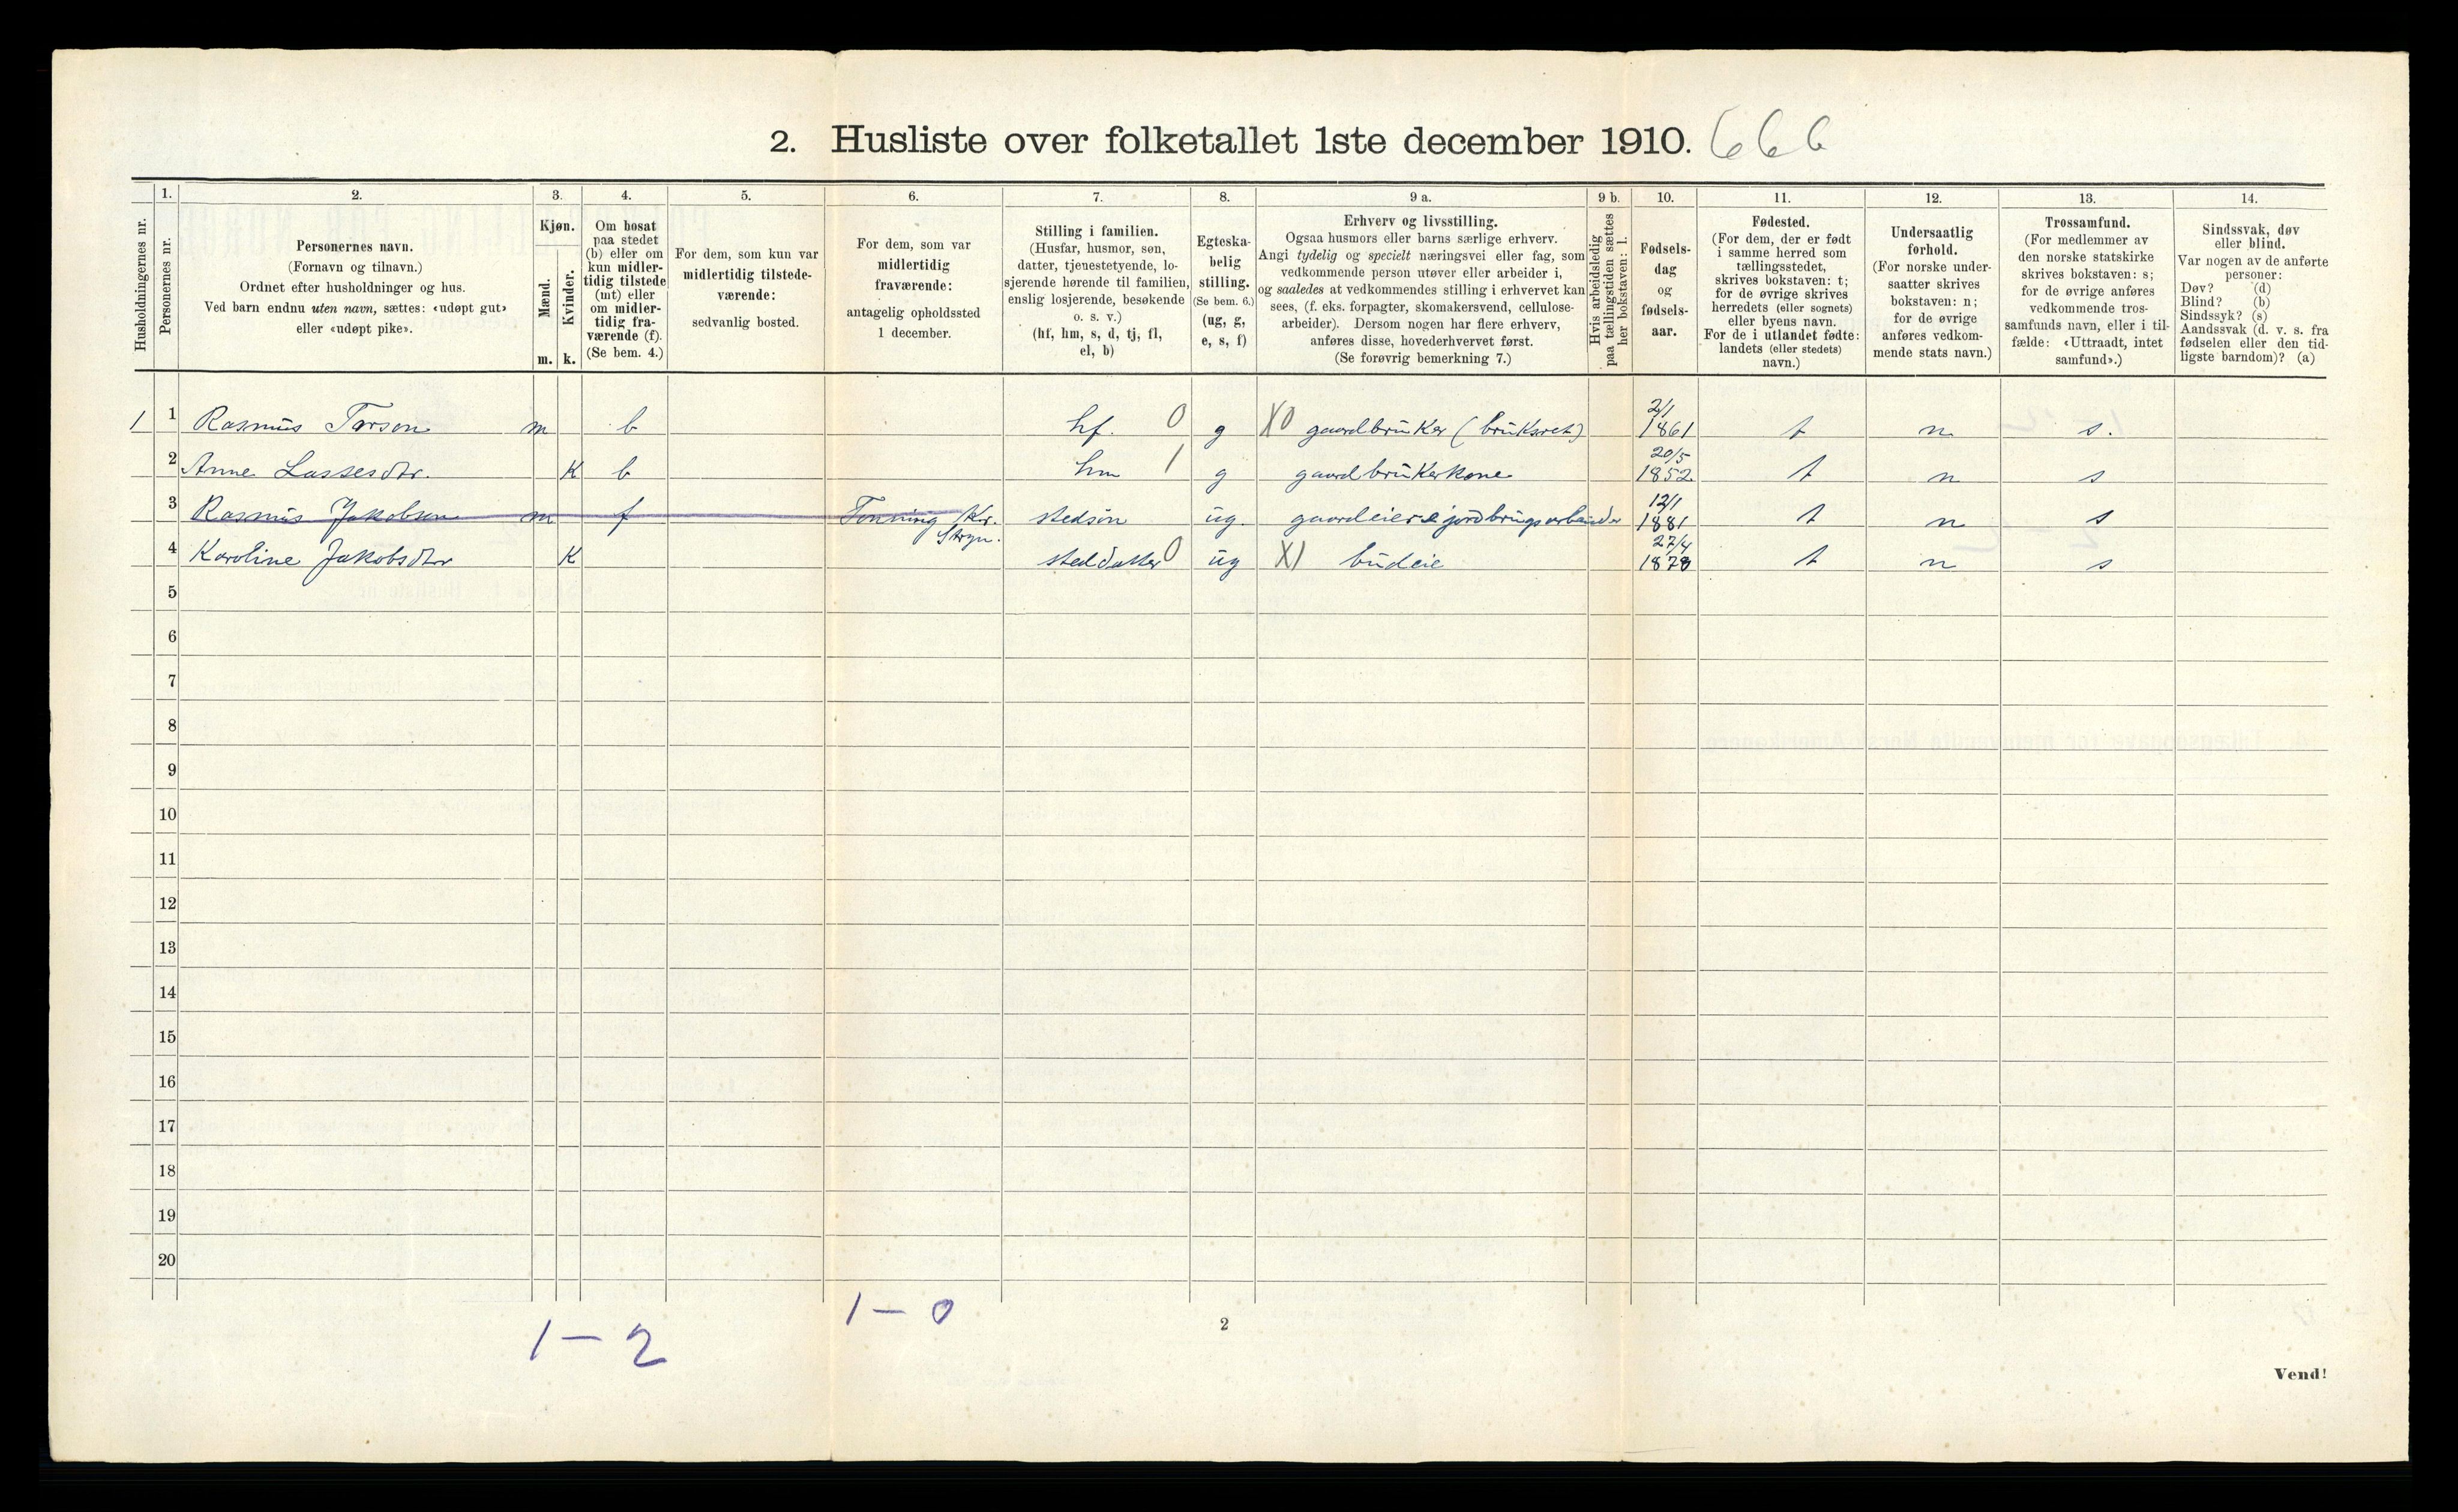 2. Husliste over folketallet 1ste december 1910. 666
Husholdningernes nr.
1.
Personernes nr.
2.
Personernes navn.
(Fornavn og tilnavn.)
Ordnet efter husholdninger og hus.
Ved barn endnu uten navn, sættes: «udøpt gut»
eller «udøpt pike».
3.
Kjøn.
Mænd.
Kvinder.
m. k.
4.
Om bosat
paa stedet
(b) eller om
kun midler-
tidig tilstede
(mt) eller
om midler-
tidig fra-
værende (f).
(Se bem. 4.)
5.
For dem, som kun var
midlertidig tilstede-
værende:
sedvanlig bosted.
6.
For dem, som var
midlertidig
fraværende:
antagelig opholdssted
1 december.
7.
Stilling i familien.
(Husfar, husmor, søn,
datter, tjenestetyende, lo-
sjerende hørende til familien,
enslig losjerende, besøkende
o. s. v.)
(hf, hm, s, d, tj, fl,
el, b)
8.
Egteska-
belig
stilling.
(Se bem. 6.)
(ug, g,
e, s, f)
9 a.
Erhverv og livsstilling.
Ogsaa husmors eller barns særlige erhverv.
Angi tydelig og specielt næringsvei eller fag, som
vedkommende person utøver eller arbeider i,
og saaledes at vedkommendes stilling i erhvervet kan
sees, (f. eks. forpagter, skomakersvend, cellulose-
arbeider). Dersom nogen har flere erhverv,
anføres disse, hovederhvervet først.
(Se forøvrig bemerkning 7.)
9 b.
Hvis arbeidsledig
paa tællingstiden sættes
her bokstaven: l.
10.
Fødsels-
dag
og
fødsels-
aar.
11.
Fødested.
(For dem, der er født
i samme herred som
tællingsstedet,
skrives bokstaven: t;
for de øvrige skrives
herredets (eller sognets)
eller byens navn.
For de i utlandet fødte:
landets (eller stedets)
navn.)
12.
Undersaatlig
forhold.
(For norske under-
saatter skrives
bokstaven: n;
for de øvrige
anføres vedkom-
mende stats navn.)
13.
Trossamfund.
(For medlemmer av
den norske statskirke
skrives bokstaven: s;
for de øvrige anføres
vedkommende tros-
samfunds navn, eller i til-
fælde: «Uttraadt, intet
samfund».)
14.
Sindssvak, døv
eller blind.
Var nogen av de anførte
personer:
Døv? (d)
Blind? (b)
Sindssyk? (s)
Aandssvak (d. v. s. fra
fødselen eller den tid-
ligste barndom)? (a)
1 1 Rasmus Tørson m b hf. 0 g X0 gaardbruker (bruksret) 2/1 1861 t n s.
2 Anne Lassesdtr. K b hm 1 g gaardbrukerkone 20/5 1852 t n s
3 Rasmus Jakobsen m f Tonning Kr. Stryn. stedsøn ug. gaardeier jordbrugsarbeider 12/1 1881 t n s
4 Karoline Jakobsdtr K steddatter 0 ug X1 budeie 27/4 1878 t n s
5
6
7
8
9
10
11
12
13
14
15
16
17
18
19
20
1 – 0
1 – 2
2
Vend!